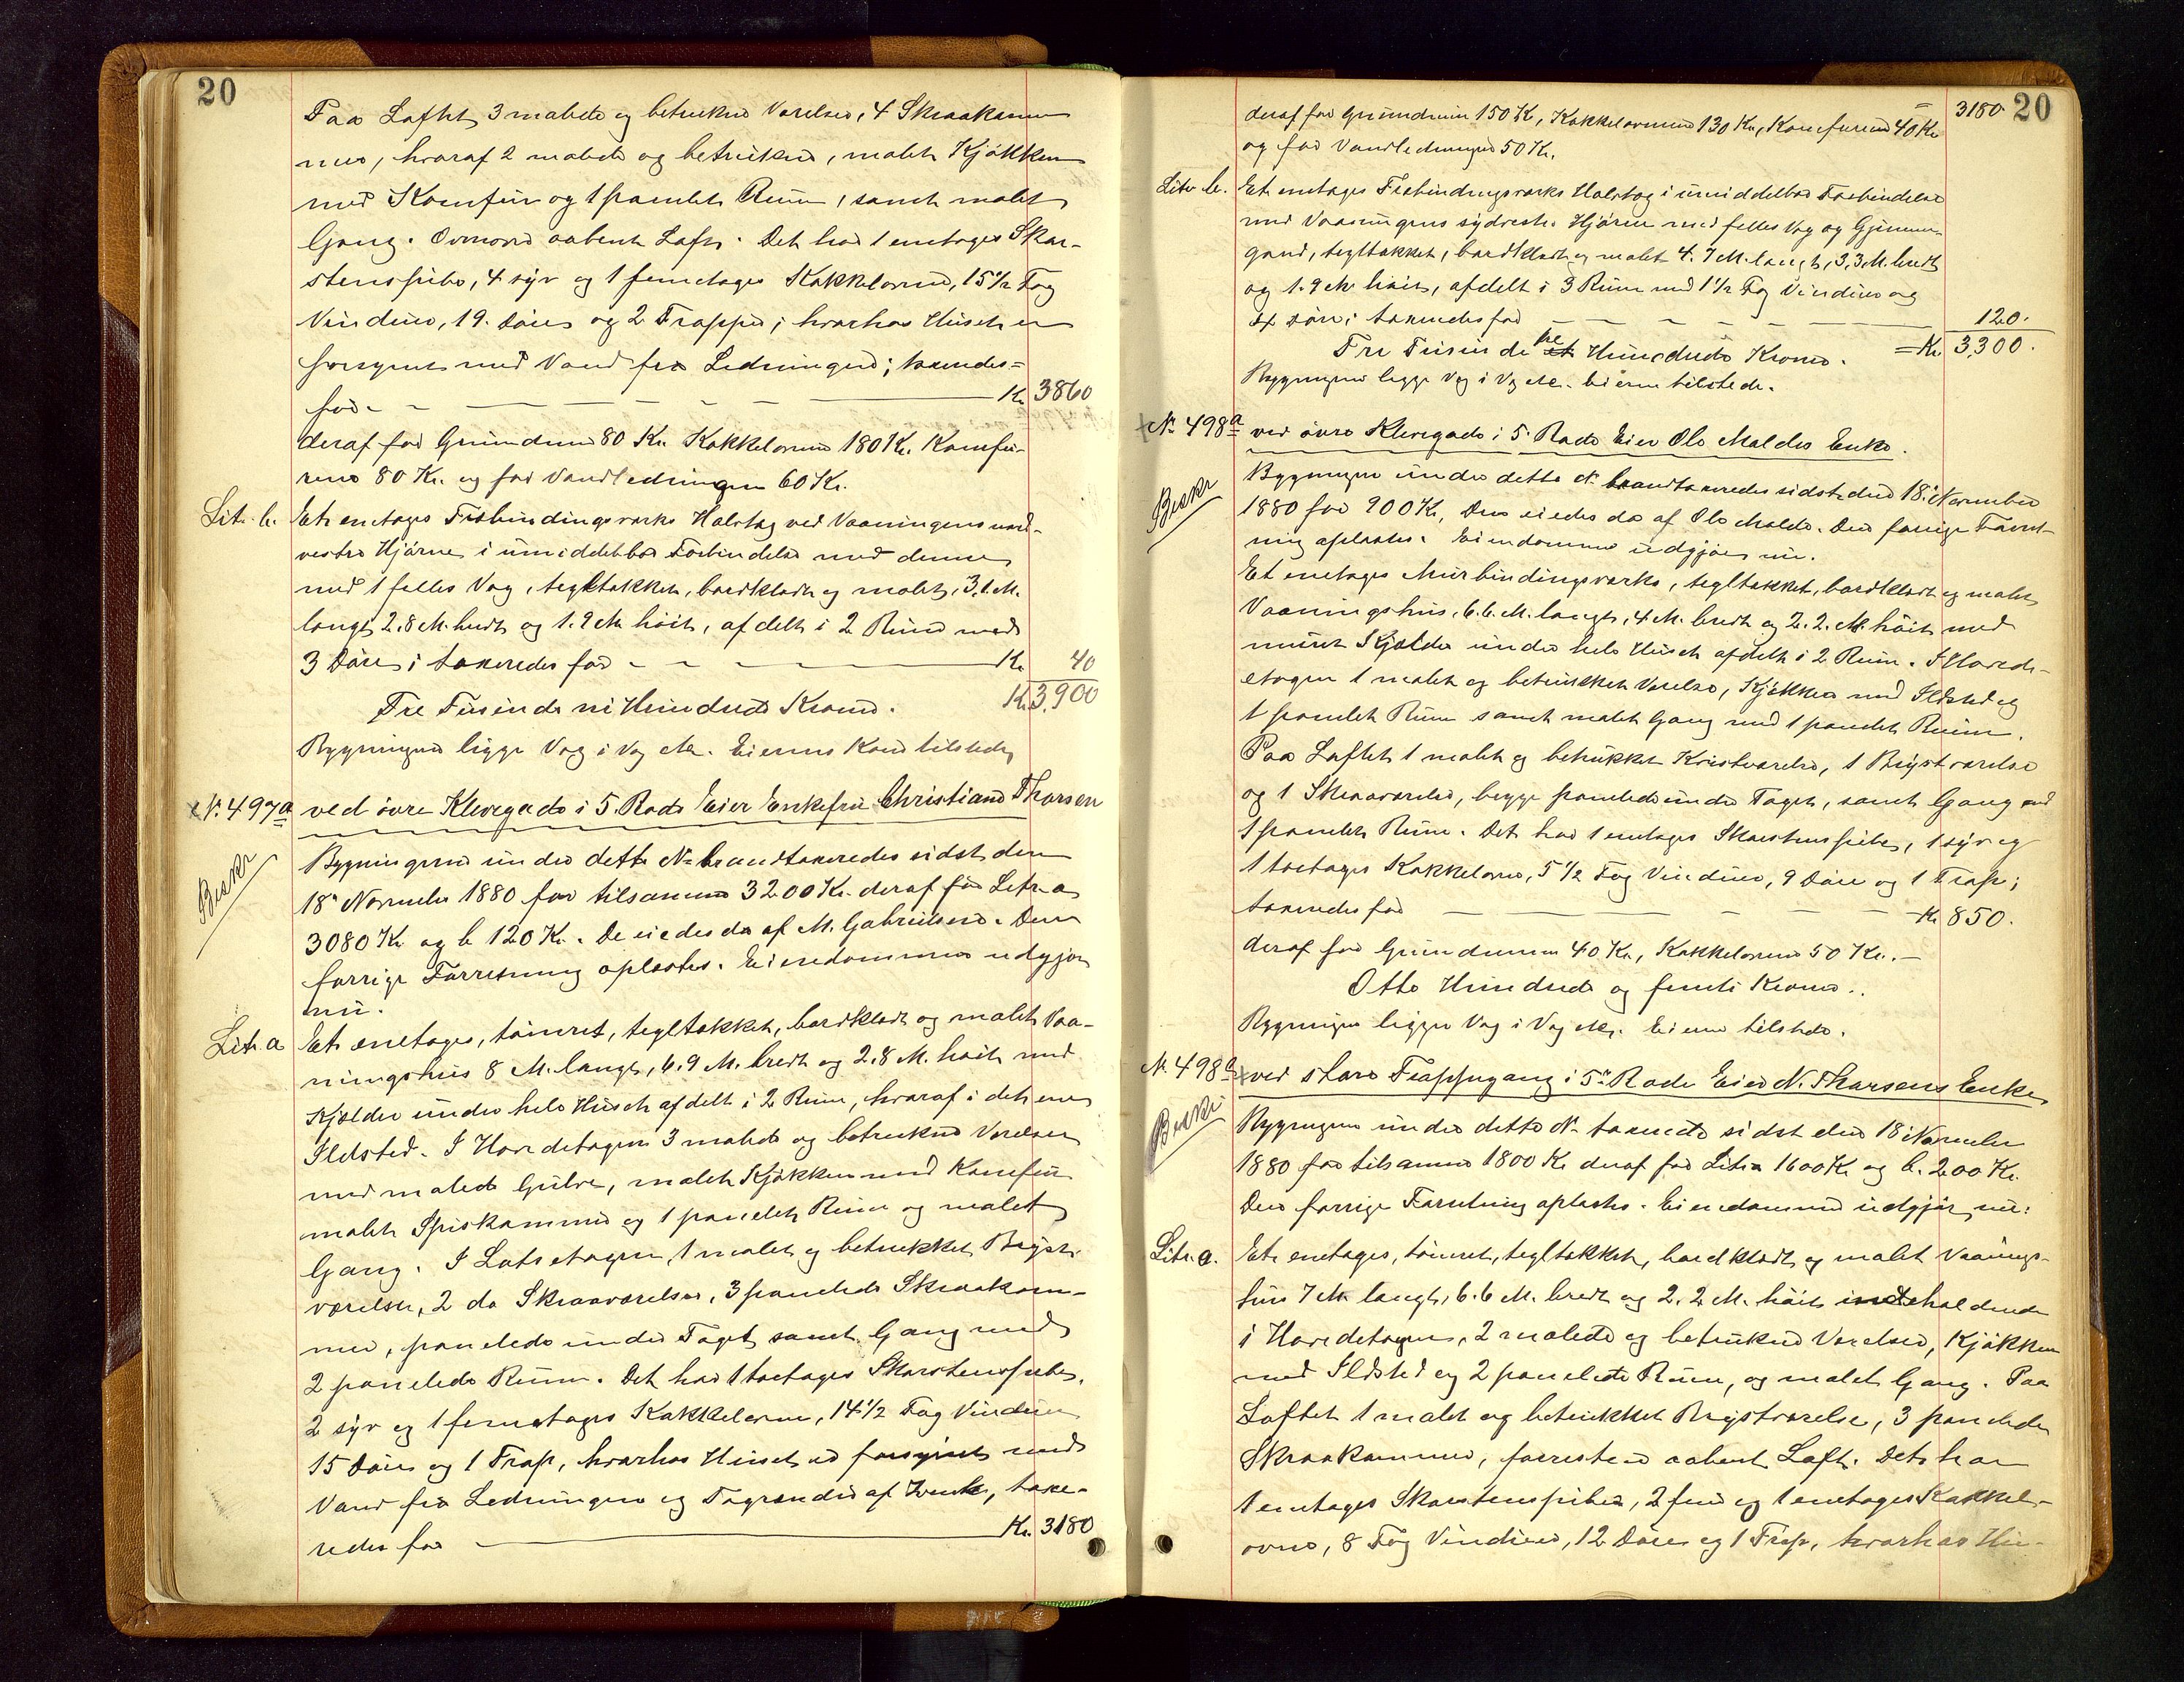 20
Paa Loftet 3 malede og betrukne Værelser, 4 Skraakam-
mer, hvoraf 2 malede og betrukne, malet Kjøkken
med Komfur og 1 panelet Rum, samt malet
Gang. Ovenover aabent Loft. Det har 1 enetages Skor-
stenspibe, 4 syv og 1 femetages Kakkelovne, 15 1/2 Fag
Vinduer, 19 Døre og 2 Trapper; hvorhos Huset er
forsynet med Vand fra Ledningen; taxeredes=
for - - Kr. 3860
deraf for Grundmur 80 Kr. Kakkelovne 180 Kr. Komfu-
rene 80 Kr. og for Vandledningen 60 Kr.
Litr. b. Et enetages Fisbindingsværks Halvtag ved Vaaningens nord-
vestre Hjørne i umiddelbar Forbindelse med denne
med 1 fælles Væg, tegltækket, bordklædt og malet, 3,1 M.
langt, 2.8 M. bredt og 1.9 M. høit, afdelt i 2 Rum med
3 Døre; taxeredes for - - Kr. 40
Tre Tusinde ni Hundrede Kroner. Kr. 3,900
Bygningerne ligge Væg i Væg etc. Eierens Kone tilstede,
x No. 497a ved øvre Klevegade i 5. Rode Eier Enkefru Christiane Thorsen
Beskr
Bygningerne under dette No. brandtaxeredes sidst den
18de November 1880 for tilsammen 3200 Kr. deraf for Litr. a
3080 Kr. og b 120 Kr. De eiedes da af M. Gabrielsen. Den
forrige Forretning oplæstes. Eiendommen udgjør
nu.
Litr. a Et enetages, tømret, tegltækket, bordklædt og malet Vaa-
ningshus 8 M. langt, 6.9 M. bredt og 2.8 M. høit med
Kjælder under hele Huset afdelt i 2 Rum, hvoraf i det ene
Ildsted. I Hovedetagen 3 malede og betrukne Værelser
med malede Gulve, malet Kjøkken med Komfur
malet Spiskammer og 1 panelet Rum og malet
Gang. I Loftsetagen 1 malet og betrukket Bryst-
værelse, 2 do Skraaværelser, 3 panelede Skraakam-
mer, panelede under Taget samt Gang med
2 panelede Rum. Det har 1 toetages Skorstenspibe,
2 syv og 1 femetages Kakkelovne, 14 1/2 Fag Vinduer
15 Døre og 1 Trap, hvorhos Huset er forsynet med
Vand fra Ledningen og Tagrender af Zink, taxe-
redes for - Kr. 3180
20
deraf for Grundmur 150 Kr, Kakkelovnene 130 Kr, Komfuren 40 Kr = 3180
og for Vandledningen 50 Kr.
Litr. b. Et enetages Fisbindingsværks Halvtag i umiddelbar Forbindelse
med Vaaningens sydvestre Hjørne med fælles Væg og Gjennem-
gang, tegltækket, bordklædt og malet 4.7 M. langt, 3,3 M. bredt
og 1.9 M. høit, afdelt i 3 Rum med 1 1/2 Fag Vinduer og
4 Døre; taxeredes for - - 120.
Tre Tusinde tre Hundrede Kroner. = Kr. 3,300.
Bygningerne ligge Væg i Væg etc. Eieren tilstede.
x No. 498a ved øvre Klevegade i 5. Rode Eier Ole Maldes Enke.
Beskr
Bygningen under dette No. brandtaxeredes sidst den 18de November
1880 for 900 Kr, Den eiedes da af Ole Malde. Den forrige Forret-
ning oplæstes. Eiendommen udgjør nu.
Et enetages Murbindingsværks, tegltækket, bordklædt og malet
Vaaningshus, 6.6. M. langt, 4 M. bredt og 2.2. M. høit med
muret Kjælder under hele Huset afdelt i 2 Rum. I Hoved-
etagen 1 malet og betrukket Værelse, Kjøkken med Ildsted og
1 panelet Rum samt malet Gang med 1 panelet Rum.
Paa Loftet 1 malet og betrukket Kvistværelse, 1 Brystværelse
og 1 Skraaværelse, begge panelede under Taget, samt Gang med
1 panelet Rum. Det har 1 enetages Skorstenspibe, 1 syv og
1 toetages Kakkelovne, 5 1/2 Fag Vinduer, 9 Døre og 1 Trap;
taxeredes for - - Kr. 850.
deraf for Grundmuren 40 Kr., Kakkelovnene 50 Kr. -
Otte Hundrede og femti Kroner.
Bygningen ligger Væg i Væg etc. Eieren tilstede.
No. 498b x ved store Trappegang i 5te Rode Eier N. Thorsens Enke,
Beskr
Bygningen under dette No. taxeredes sidst den 18de November
1880 for tilsammen 1800 Kr. deraf for Litr. a 1600 Kr. og b. 200 Kr.
Den forrige Forretning oplæstes. Eiendommen udgjør nu:
Litr. a. Et enetages, tømret, tegltækket, bordklædt og malet Vaanings-
hus 7 M. langt, 6.6 M. bredt og 2.2 M. høit indeholdende
i Hovedetagen, 2 malede og betrukne Værelser, Kjøkken
med Ildsted og 2 panelede Rum, og malet Gang. Paa
Loftet 1 malet og betrukket Brystværelse, 3 panelede
Skraakammer, forresten aabent Loft. Det har
1 enetages Skorstenspibe, 2 fem og 1 enetages Kakkel-
ovne, 8 Fag Vinduer, 12 Døre og 1 Trap, hvorhos Hu-